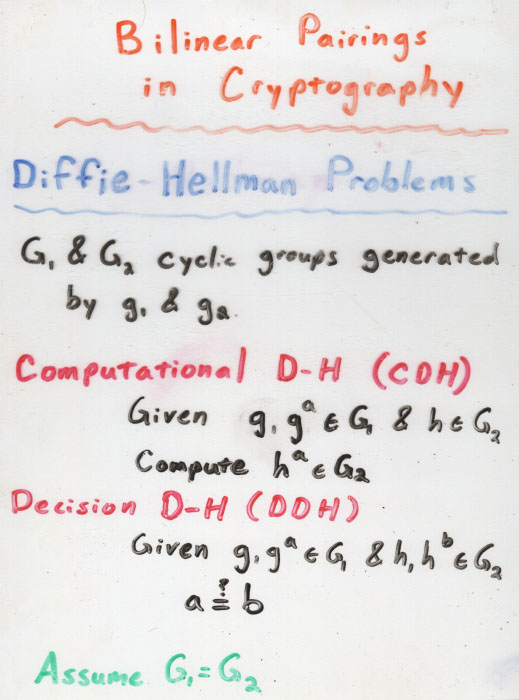 Bilinear Pairings
in Cryptography
Diffie-Hellman Problems
G₁ & G₂ cyclic groups generated
by g₁ & g₂.
Computational D-H (CDH)
Given g, gᵃ ∈ G₁ & h ∈ G₂
Compute hᵃ ∈ G₂
Decision D-H (DDH)
Given g, gᵃ ∈ G₁ & h, hᵇ ∈ G₂
a ≟ b
Assume G₁ = G₂